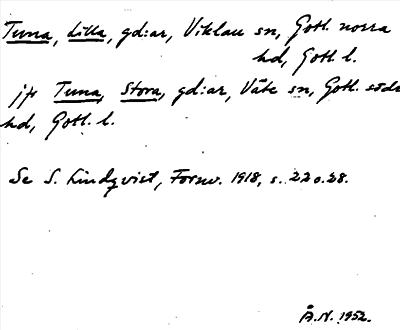 Tuna, Lilla, gd:ar, Viklau sn, Gotl. norra
hd, Gotl. l.
jfr Tuna, Stora, gd:ar, Väte sn, Gotl. södra
hd, Gotl. l.
Se S. Lindqvist, Fornv. 1918, s. 22 o. 28.
Å.N. 1952.